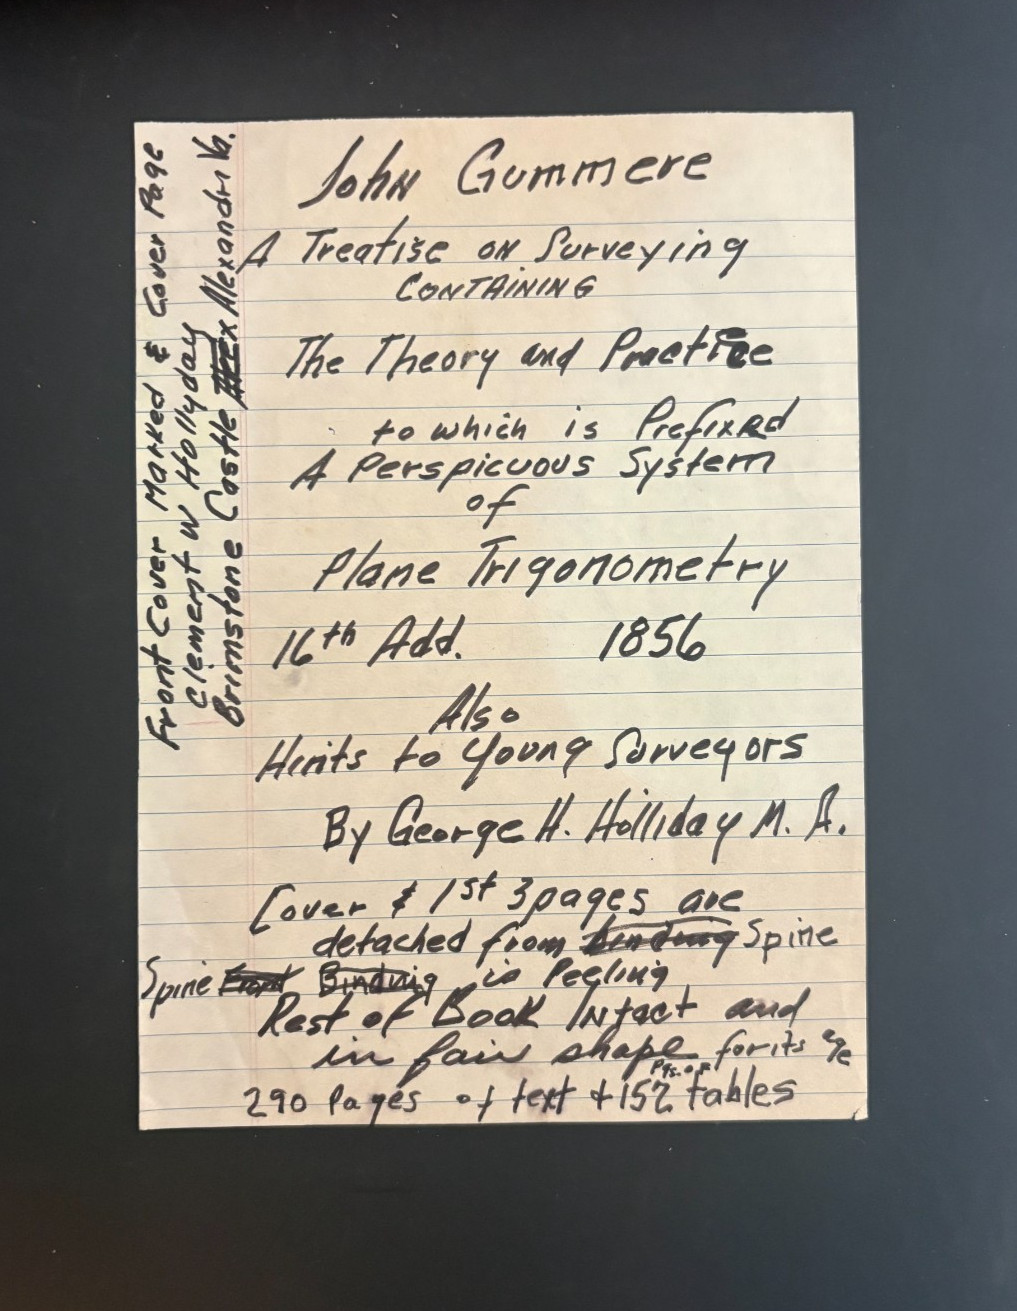 John Gummere
A Treatise on Surveying
CONTAINING
The Theory and Practice
to which is Prefixed
A Perspicuous System
of
Plane Trigonometry
16th Add. 1856
Also
Hints to Young Surveyors
By George H. Holliday M. A.
Cover & 1st 3 pages are
detached from binding Spine
Spine Front Binding is Peeling
Rest of Book Intact and
in fair shape for its age
290 Pages of text + 152 Pgs. of tables
Front Cover Marked & Cover Page
Clement W Hollyday
Brimstone Castle Alex Alexandri Va.